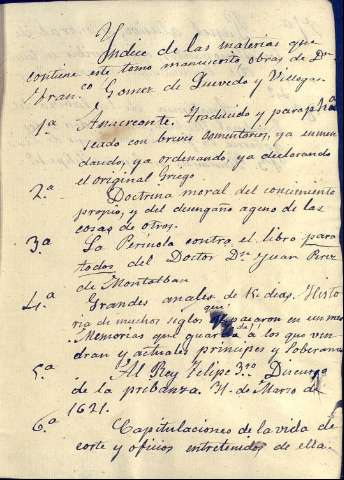 Yndece de las materias que
contiene este tomo manuscrito, obras de Dn
Fran.co Gomez de Quevedo y Villegas.
1.a Anacreonte. Traducido y paraphra
seado con breves comentarios, ya enmen
dando, ya ordenando, ya declarando
el original Griego
2.a Doctrina moral del conocimiento
propio, y del desengaño ageno de las
cosas de otros.
3.a La Perinola contra el libro para
todos del Doctor Dn. Juan Perez
de Montalban
4.a Grandes anales de 15 dias. Histo
ria de muchos siglos que pasaron en un mes
Memorias que guarda a los que ven
dran y actuales principes y Soberanos
5.a Al Rey Felipe 3.ro Discurso
de la probanza. 31 de Marzo de
1621.
6.a Capitulaciones de la vida de
corte y oficios entretenidos de ella.